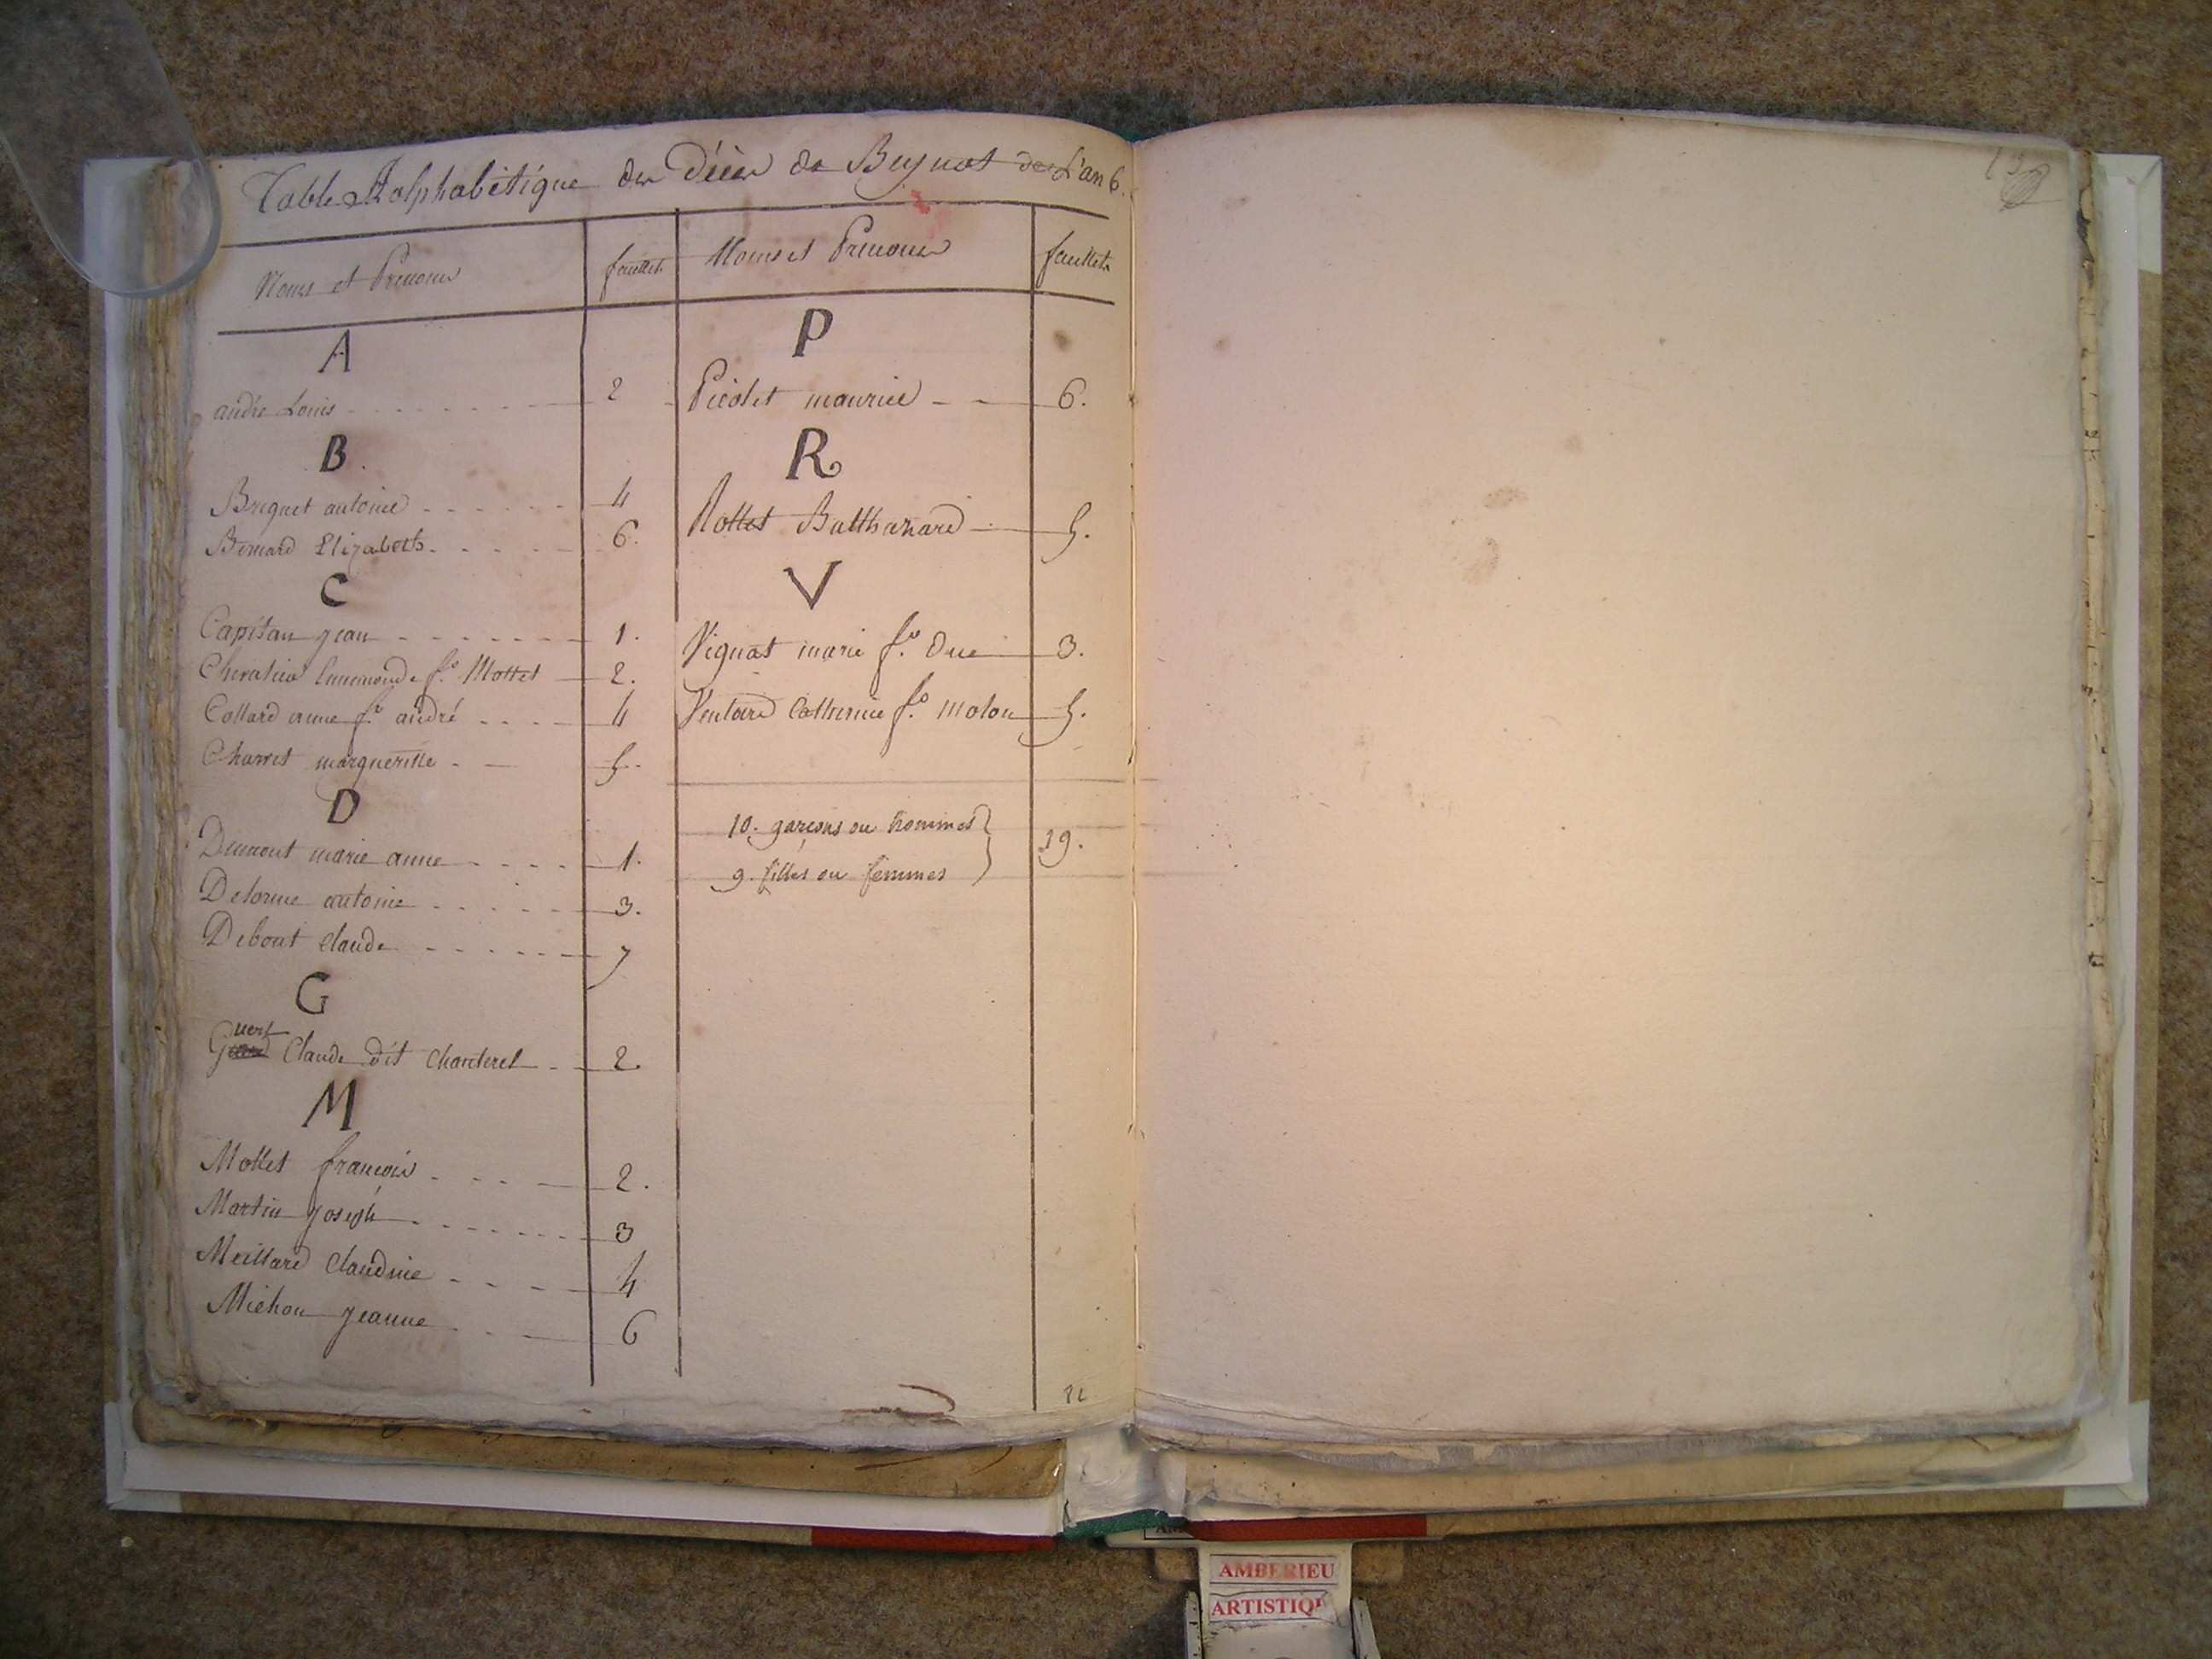 Table Alphabétique des Décès de Beynost de L'an 6.
Noms et Prenoms
feuillets
A
andré Louis 2
B.
Breguet antoine 4
Bernard Elizabeth 6.
C
Capitan jean 1.
Chevalier fe. Mottet 2.
Collard anne fe. andré 4
Charvet margueritte 5.
D
Dumont marie anne 1.
Delorme antoine 3.
Debout claude 7
G
Guert Claude dit Chanterel 2.
M
Mollet françois 2.
Martin joseph 3
Meillard claudine 4
Michon jeanne 6
Noms et Prenoms
feuillets
P
Picolet maurice 6.
R
Rottet Balthazard 5.
V
Vignat marie fe. Duc 3.
Ventard Catherine fe. molon 5.
10. garçons ou hommes
9. filles ou femmes
19.
AMBERIEU
ARTISTIQU